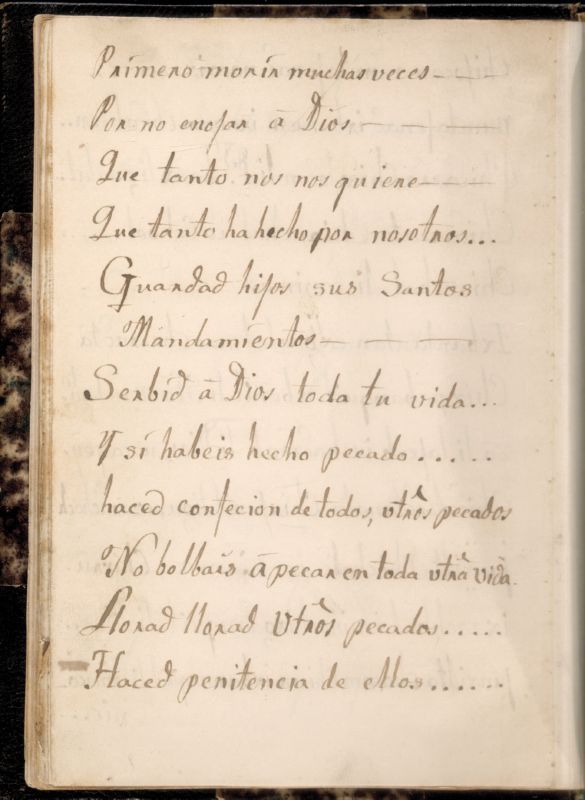 Primero morir muchas veces
Por no enojar â Dios
Que tanto nos nos quiere
Que tanto ha hecho por nosotros...
Guardad hijos sus Santos
Mandamientos
Serbid â Dios toda tu vida...
Y si habeis hecho pecado......
haced confecion de todos, vtrôs pecados
No bolbais â pecar en toda vtrâ vida.
Llorad llorad Vtrôs pecados.....
Haced penitencia de ellos......